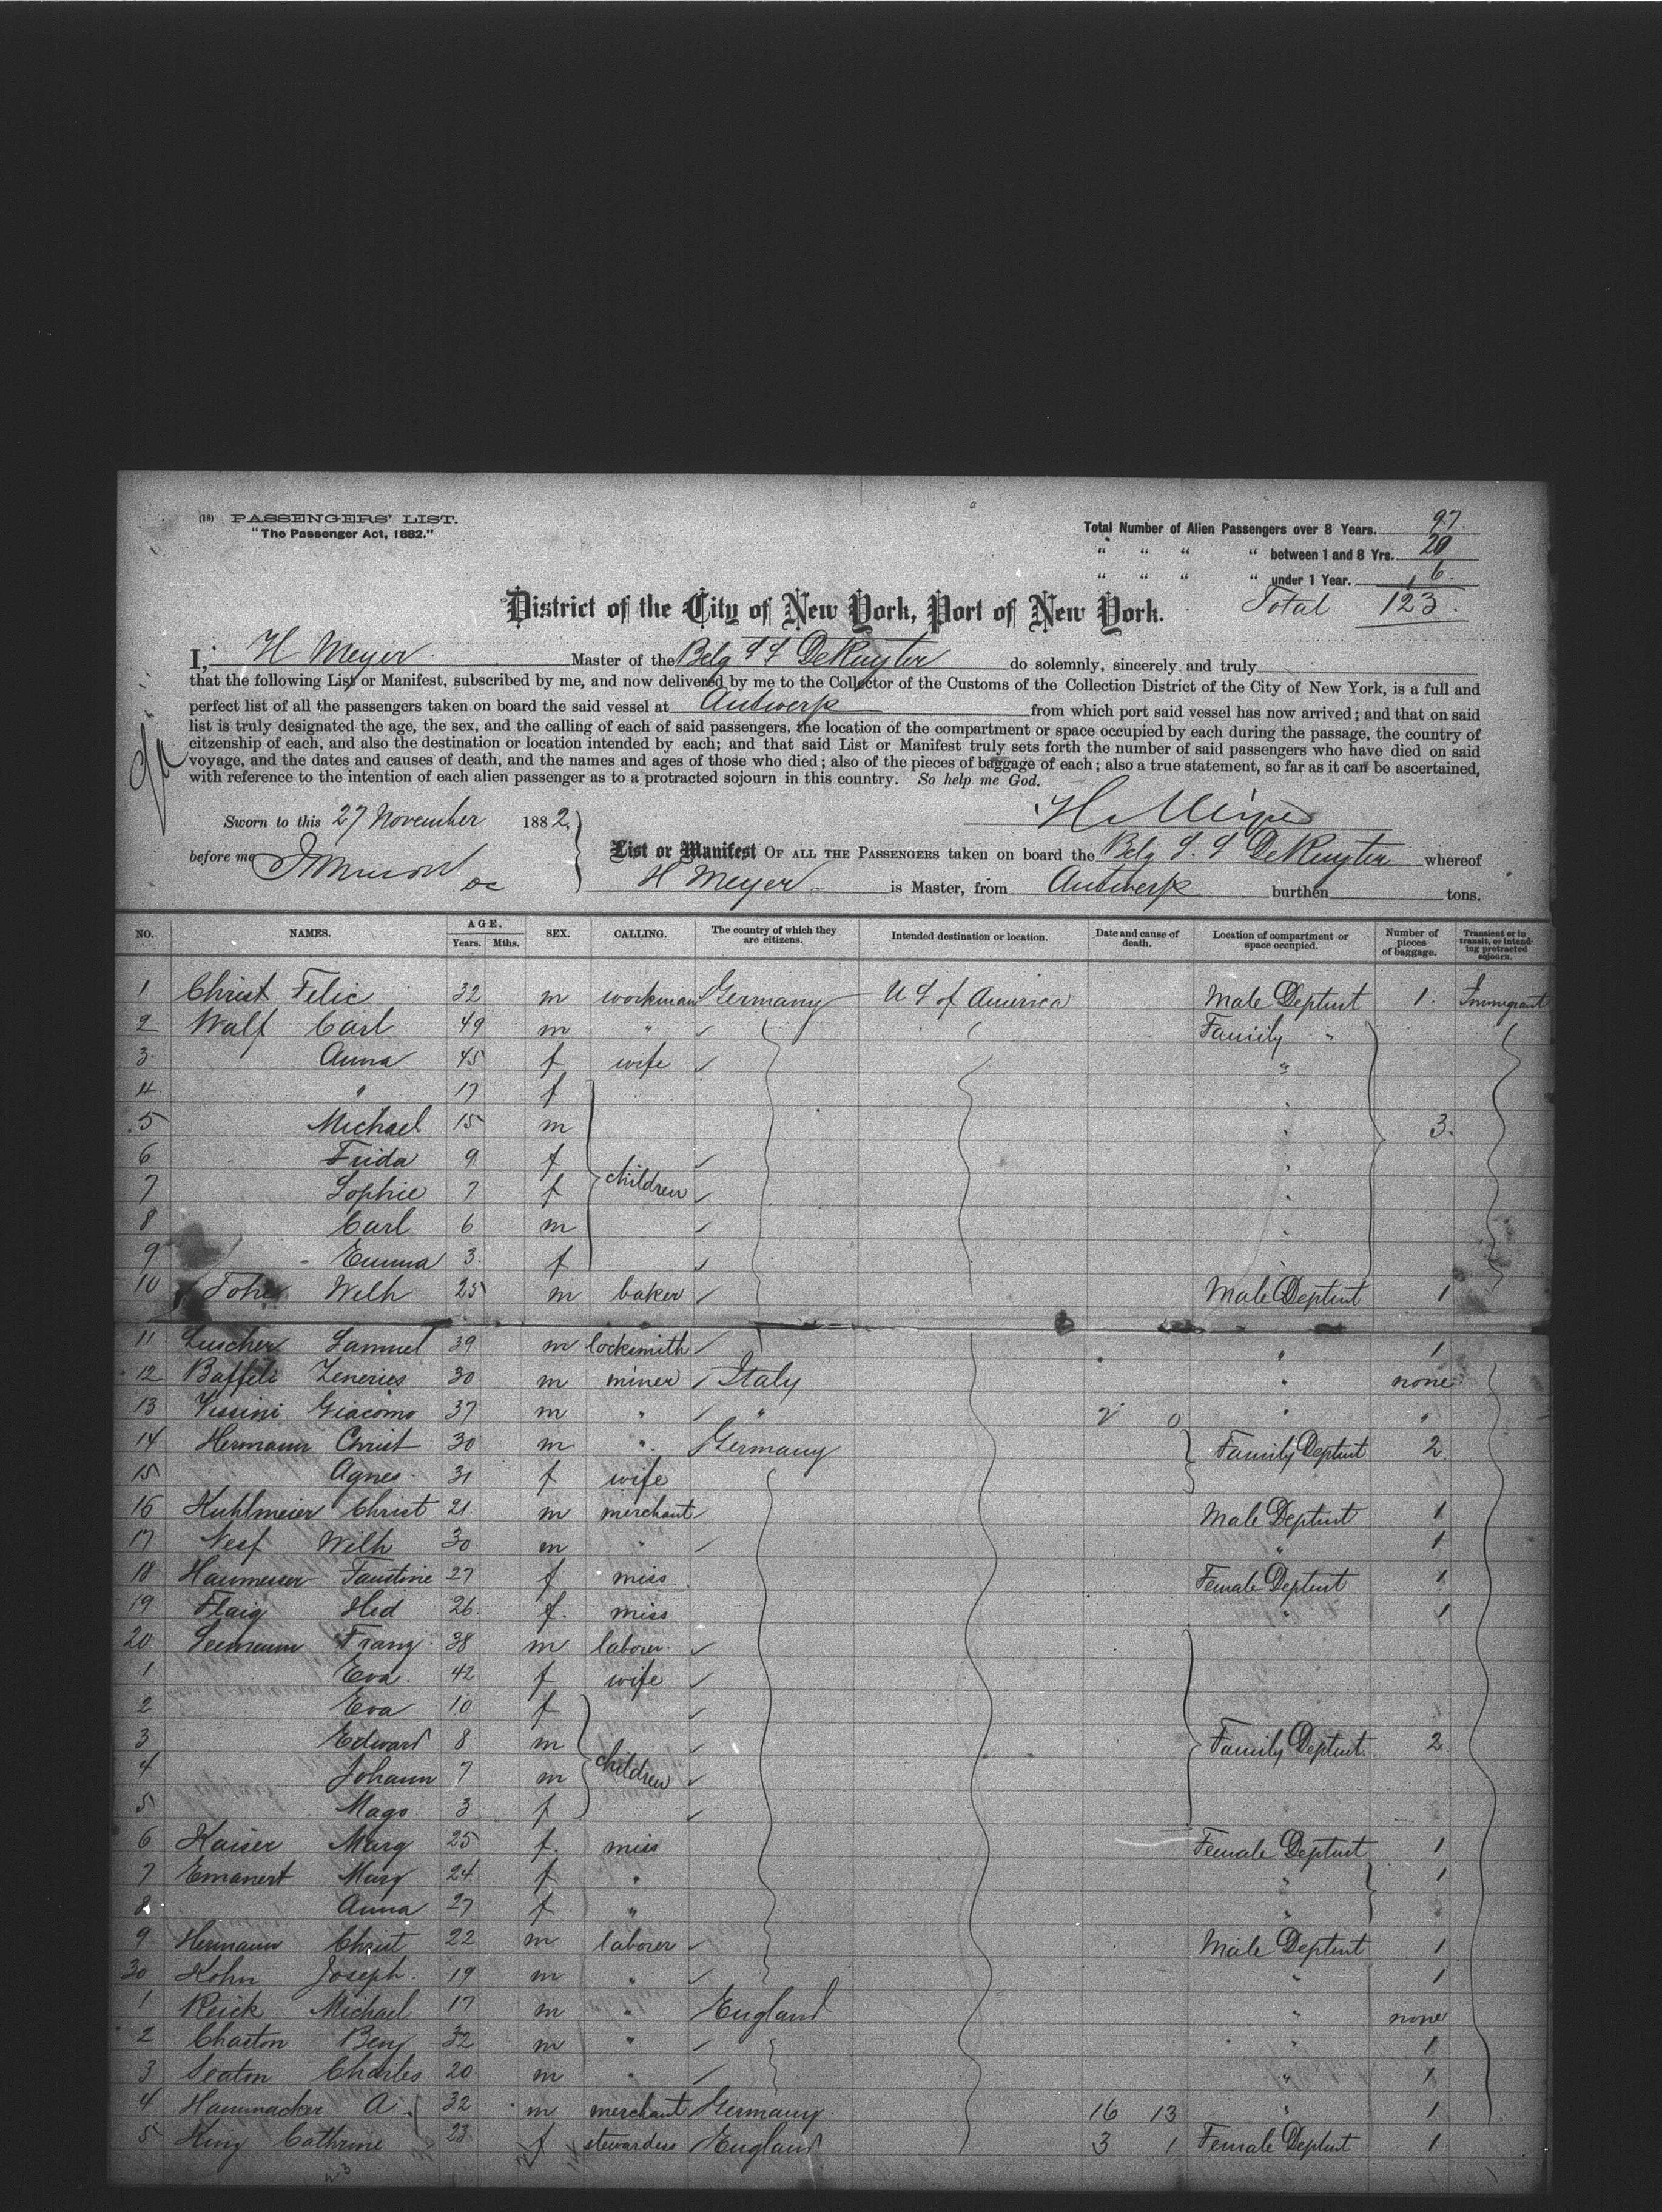 (18) PASSENGERS' LIST.
"The Passenger Act, 1882."
Total Number of Alien Passengers over 8 Years. 97.
" " " " between 1 and 8 Yrs. 20
" " " " under 1 Year. 6.
Total 123.
District of the City of New York, Port of New York.
I, H Meyer Master of the Belg SS DeRuyter do solemnly, sincerely and truly
that the following List or Manifest, subscribed by me, and now delivered by me to the Collector of the Customs of the Collection District of the City of New York, is a full and
perfect list of all the passengers taken on board the said vessel at Antwerp from which port said vessel has now arrived; and that on said
list is truly designated the age, the sex, and the calling of each of said passengers, the location of the compartment or space occupied by each during the passage, the country of
citzenship of each, and also the destination or location intended by each; and that said List or Manifest truly sets forth the number of said passengers who have died on said
voyage, and the dates and causes of death, and the names and ages of those who died; also of the pieces of baggage of each; also a true statement, so far as it can be ascertained,
with reference to the intention of each alien passenger as to a protracted sojourn in this country. So help me God.
H Meyer
Sworn to this 27 November 1882.
before me
List or Manifest OF ALL THE PASSENGERS taken on board the Belg S.S DeRuyter whereof
H Meyer is Master, from Antwerp burthen tons.
NO. NAMES. AGE. Years. Mths. SEX. CALLING. The country of which they are citizens. Intended destination or location. Date and cause of death. Location of compartment or space occupied. Number of pieces of baggage. Transient or in transit, or intending protracted sojourn.
1 Christ Felic 32 m workman Germany U S of America Male Deptmt 1. Immigrant
2 Walf Carl 49 m " Family "
3 Anna 45 f wife "
4 " 17 f
5 Michael 15 m 3.
6 Frida 9 f
7 Sophie 7 f children
8 Carl 6 m
9 Emma 3. f
10 Welh 25 m baker Male Deptmt 1
11 Luscher Samuel 39 m locksmith " 1
12 Baffeli Zeneries 30 m miner Italy " none
13 Vissini Giacomo 37 m " " 2 0 " "
14 Hermann Christ 30 m " Germany Family Deptmt 2
15 Agnes 31 f wife
16 Kuhlmeier Christ 21 m merchant Male Deptmt 1
17 Nesf Wilh 30 m " " 1
18 Haumesser Faustine 27 f miss Female Deptmt 1
19 Flaig Hed 26 f. miss " 1
20 Seemann Franz 38 m laborer
1 Eva 42 f wife
2 Eva 10 f
3 Edward 8 m Family Deptmt 2
4 Johann 7 m children
5 Mago 3 f
6 Kaiser Marg 25 f. miss Female Deptmt 1
7 Emanert Marg 24 f " " 1
8 Anna 27 f " "
9 Hermann Christ 22 m laborer Male Deptmt 1
30 Kohn Joseph. 19 m " " 1
1 Reick Michael 17 m " England " none
2 Charton Benj 32 m " " 1
3 Seaton Charles 20 m " " 1
4 Hammacker A. 32 m merchant Germany 16 13 " 1
5 King Cathrine 23 f stewardess England 3 1 Female Deptmt 1